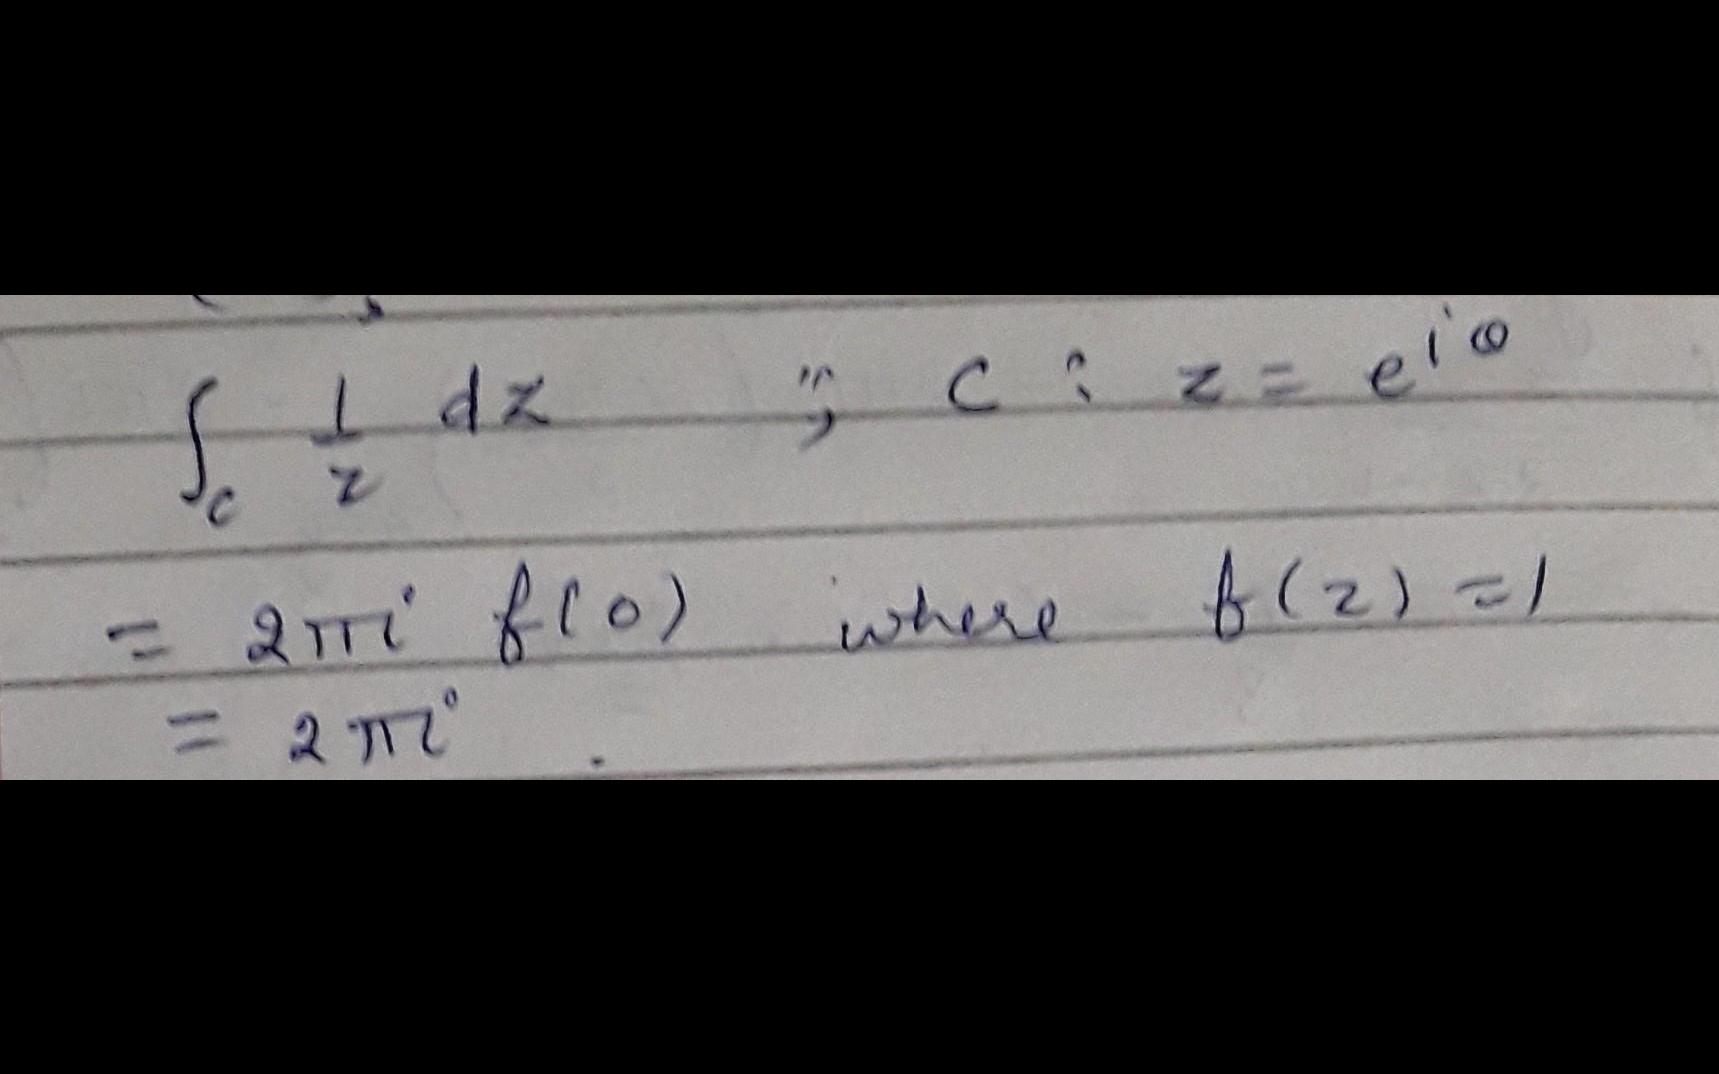 ∫_C 1/z dz ; C : z = e^{iθ}
= 2πi f(0) where f(z) = 1
= 2πi .